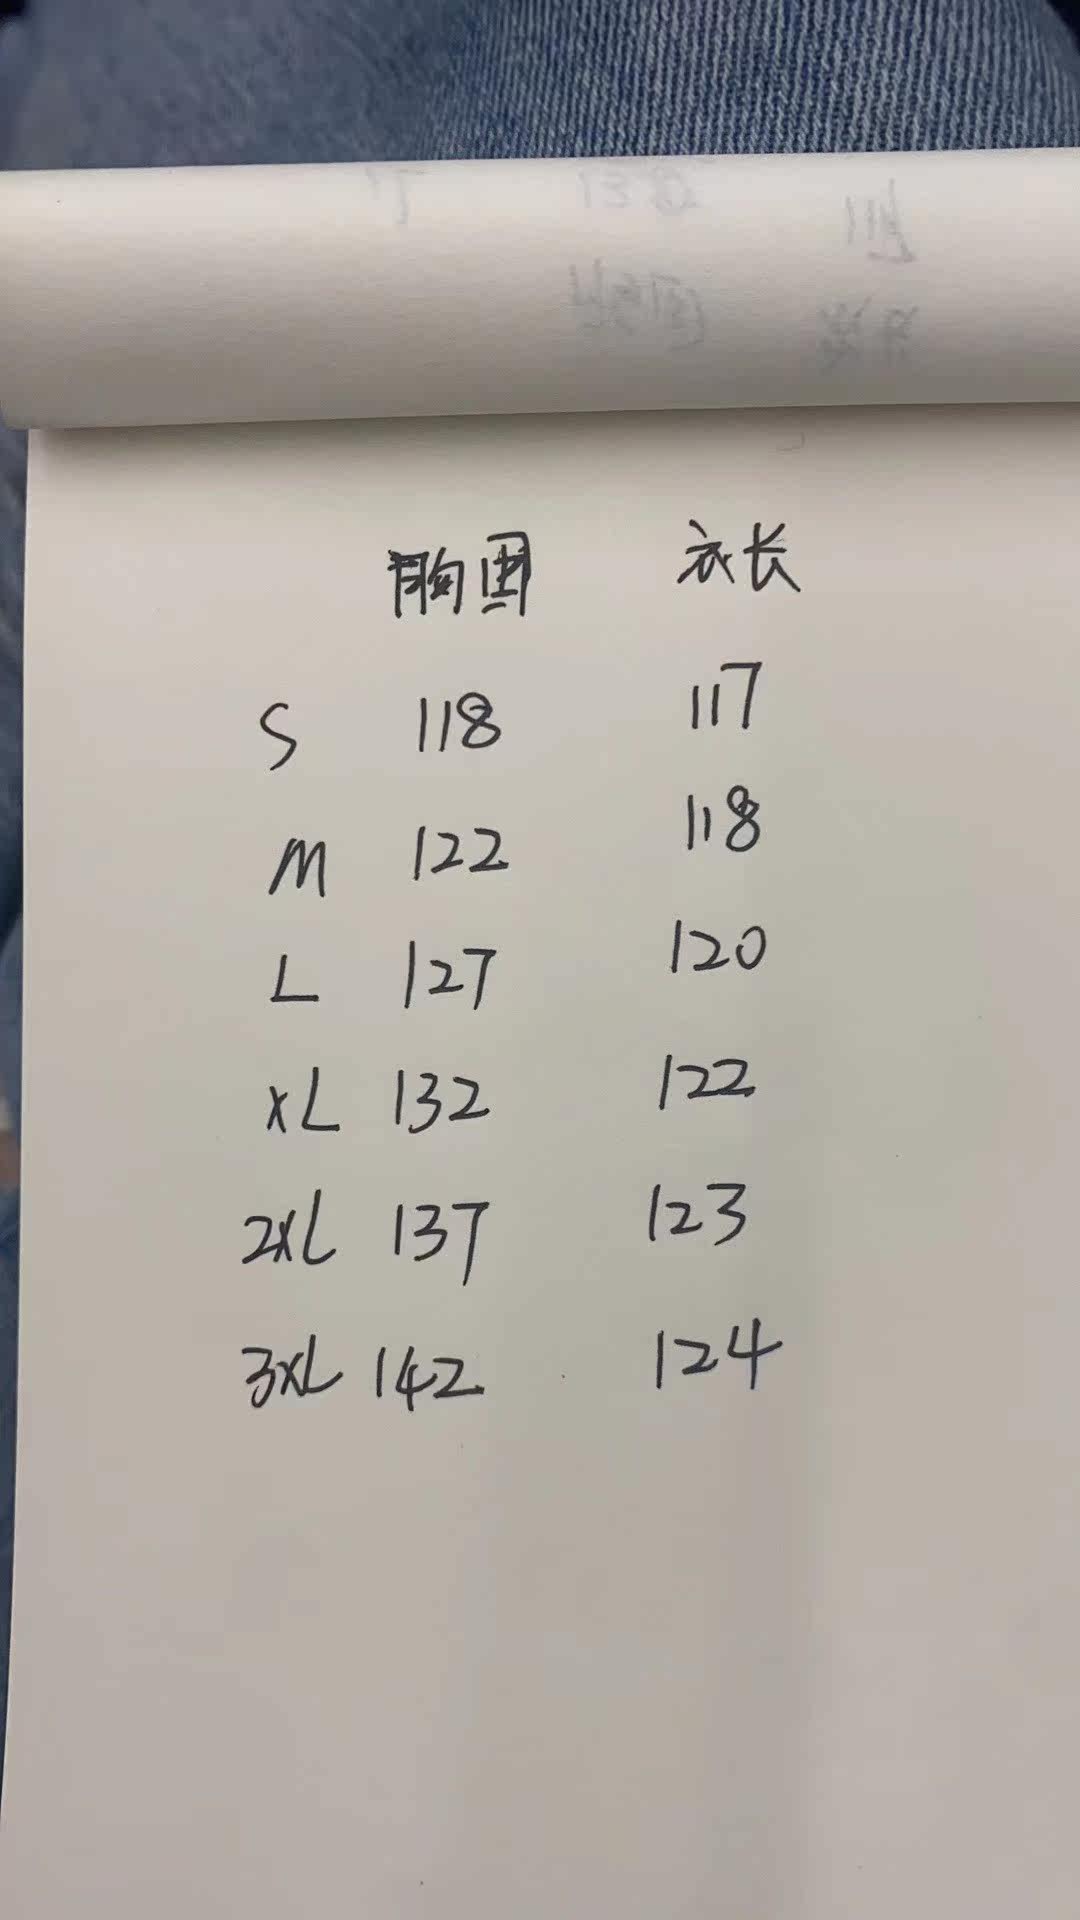 胸围 衣长
S 118 117
M 122 118
L 127 120
XL 132 122
2XL 137 123
3XL 142 124